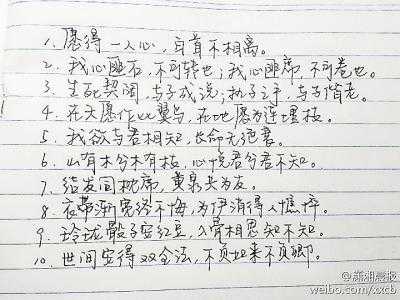 1. 愿得一人心，白首不相离。
2. 我心匪石，不可转也；我心匪席，不可卷也。
3. 生死契阔，与子成说；执子之手，与子偕老。
4. 在天愿作比翼鸟，在地愿为连理枝。
5. 我欲与君相知，长命无绝衰。
6. 山有木兮木有枝，心悦君兮君不知。
7. 结发同枕席，黄泉共为友。
8. 衣带渐宽终不悔，为伊消得人憔悴。
9. 玲珑骰子安红豆，入骨相思知不知。
10. 世间安得双全法，不负如来不负卿。
@新湘晨报
weibo.com/xxcb